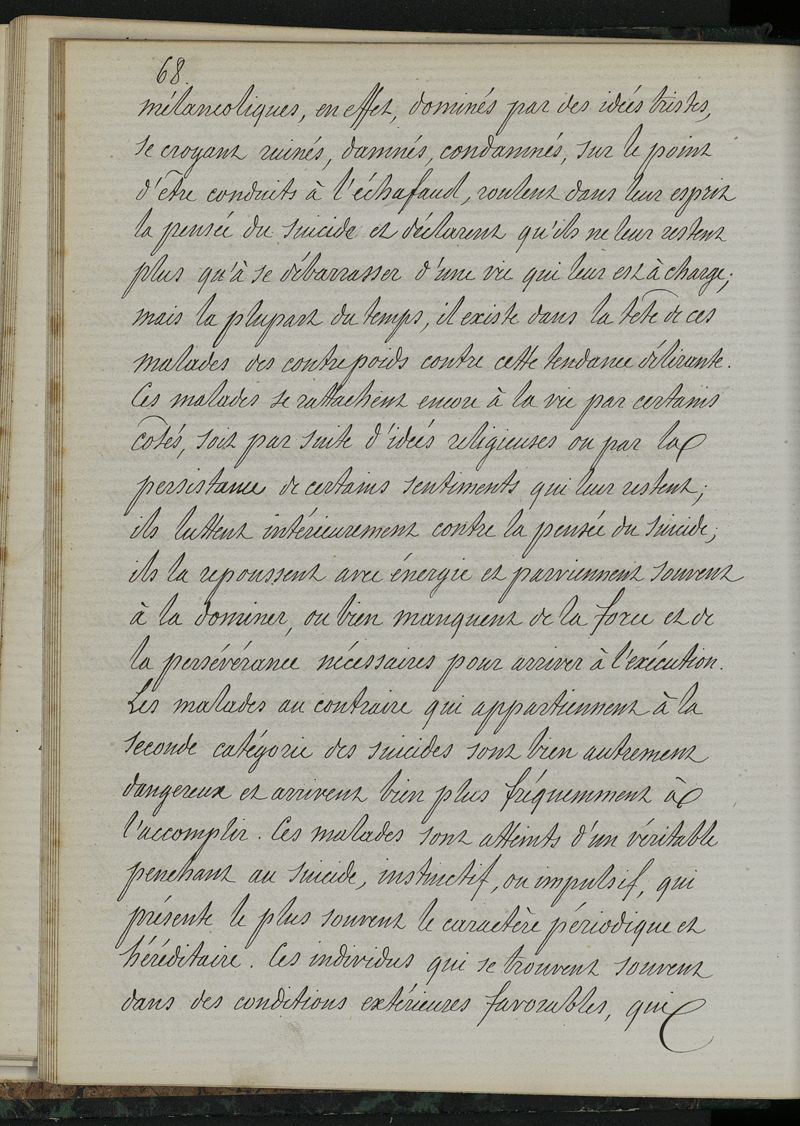 68.
mélancoliques, en effet, dominés par des idées tristes,
se croyant ruinés, damnés, condamnés, sur le point
d'être conduits à l'échafaud, roulent dans leur esprit
la pensée du suicide et déclarent qu'ils ne leur restent
plus qu'à se débarrasser d'une vie qui leur est à charge;
mais la plupart du temps, il existe dans la tête de ces
malades des contrepoids contre cette tendance délirante.
Ces malades se rattachent encore à la vie par certains
cotés, soit par suite d'idées religieuses ou par la
persistance de certains sentiments qui leur restent;
ils luttent intérieurement contre la pensée du suicide;
ils la repoussent avec énergie et parviennent souvent
à la dominer, ou bien manquent de la force et de
la persévérance nécessaires pour arriver à l'exécution.
Les malades au contraire qui appartiennent à la
seconde catégorie des suicides sont bien autrement
dangereux et arrivent bien plus fréquemment à
l'accomplir. Ces malades sont atteints d'un véritable
penchant au suicide, instinctif, ou impulsif, qui
présente le plus souvent le caractère périodique et
héréditaire. Ces individus qui se trouvent souvent
dans des conditions extérieures favorables, qui